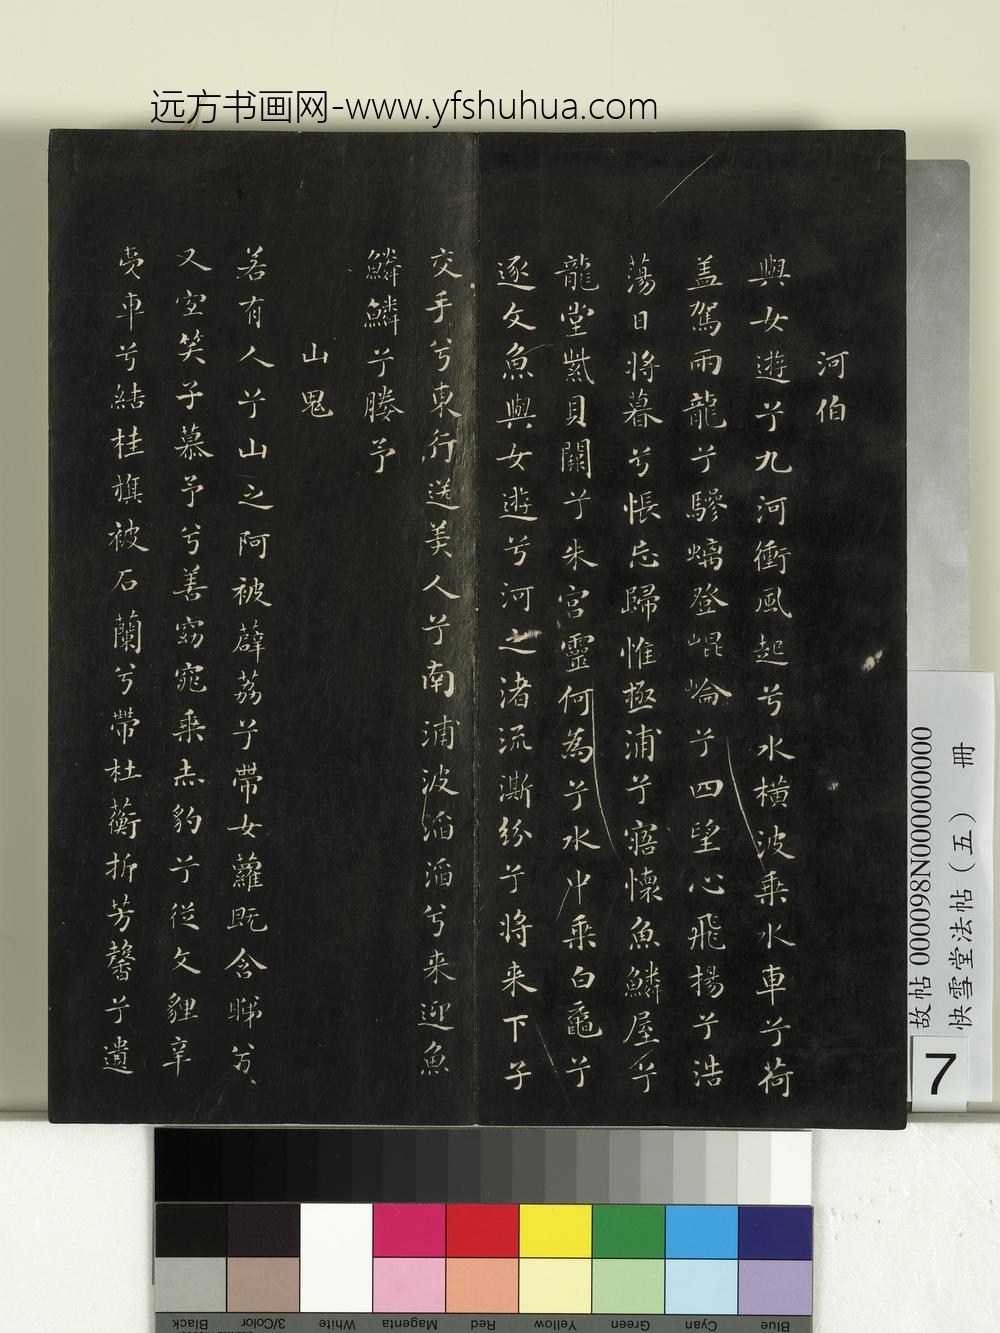 远方书画网-www.yfshuhua.com
河伯
與女遊兮九河衝風起兮水橫波乘水車兮荷
蓋駕兩龍兮驂螭登崐崘兮四望心飛揚兮浩
蕩日將暮兮悵忘歸惟極浦兮寤懷魚鱗屋兮
龍堂紫貝闕兮朱宮靈何為兮水中乘白黿兮
逐文魚與女遊兮河之渚流澌紛兮將来下子
交手兮東行送美人兮南浦波滔滔兮来迎魚
鱗鱗兮媵予
山鬼
若有人兮山之阿被薜荔兮帶女蘿既含睇兮
又宜笑子慕予兮善窈窕乘赤豹兮從文貍辛
夷車兮結桂旗被石蘭兮帶杜蘅折芳馨兮遺
故帖 000098N000000000
快雪堂法帖（五） 冊
7
Black 3/Color White Magenta Red Yellow Green Cyan Blue